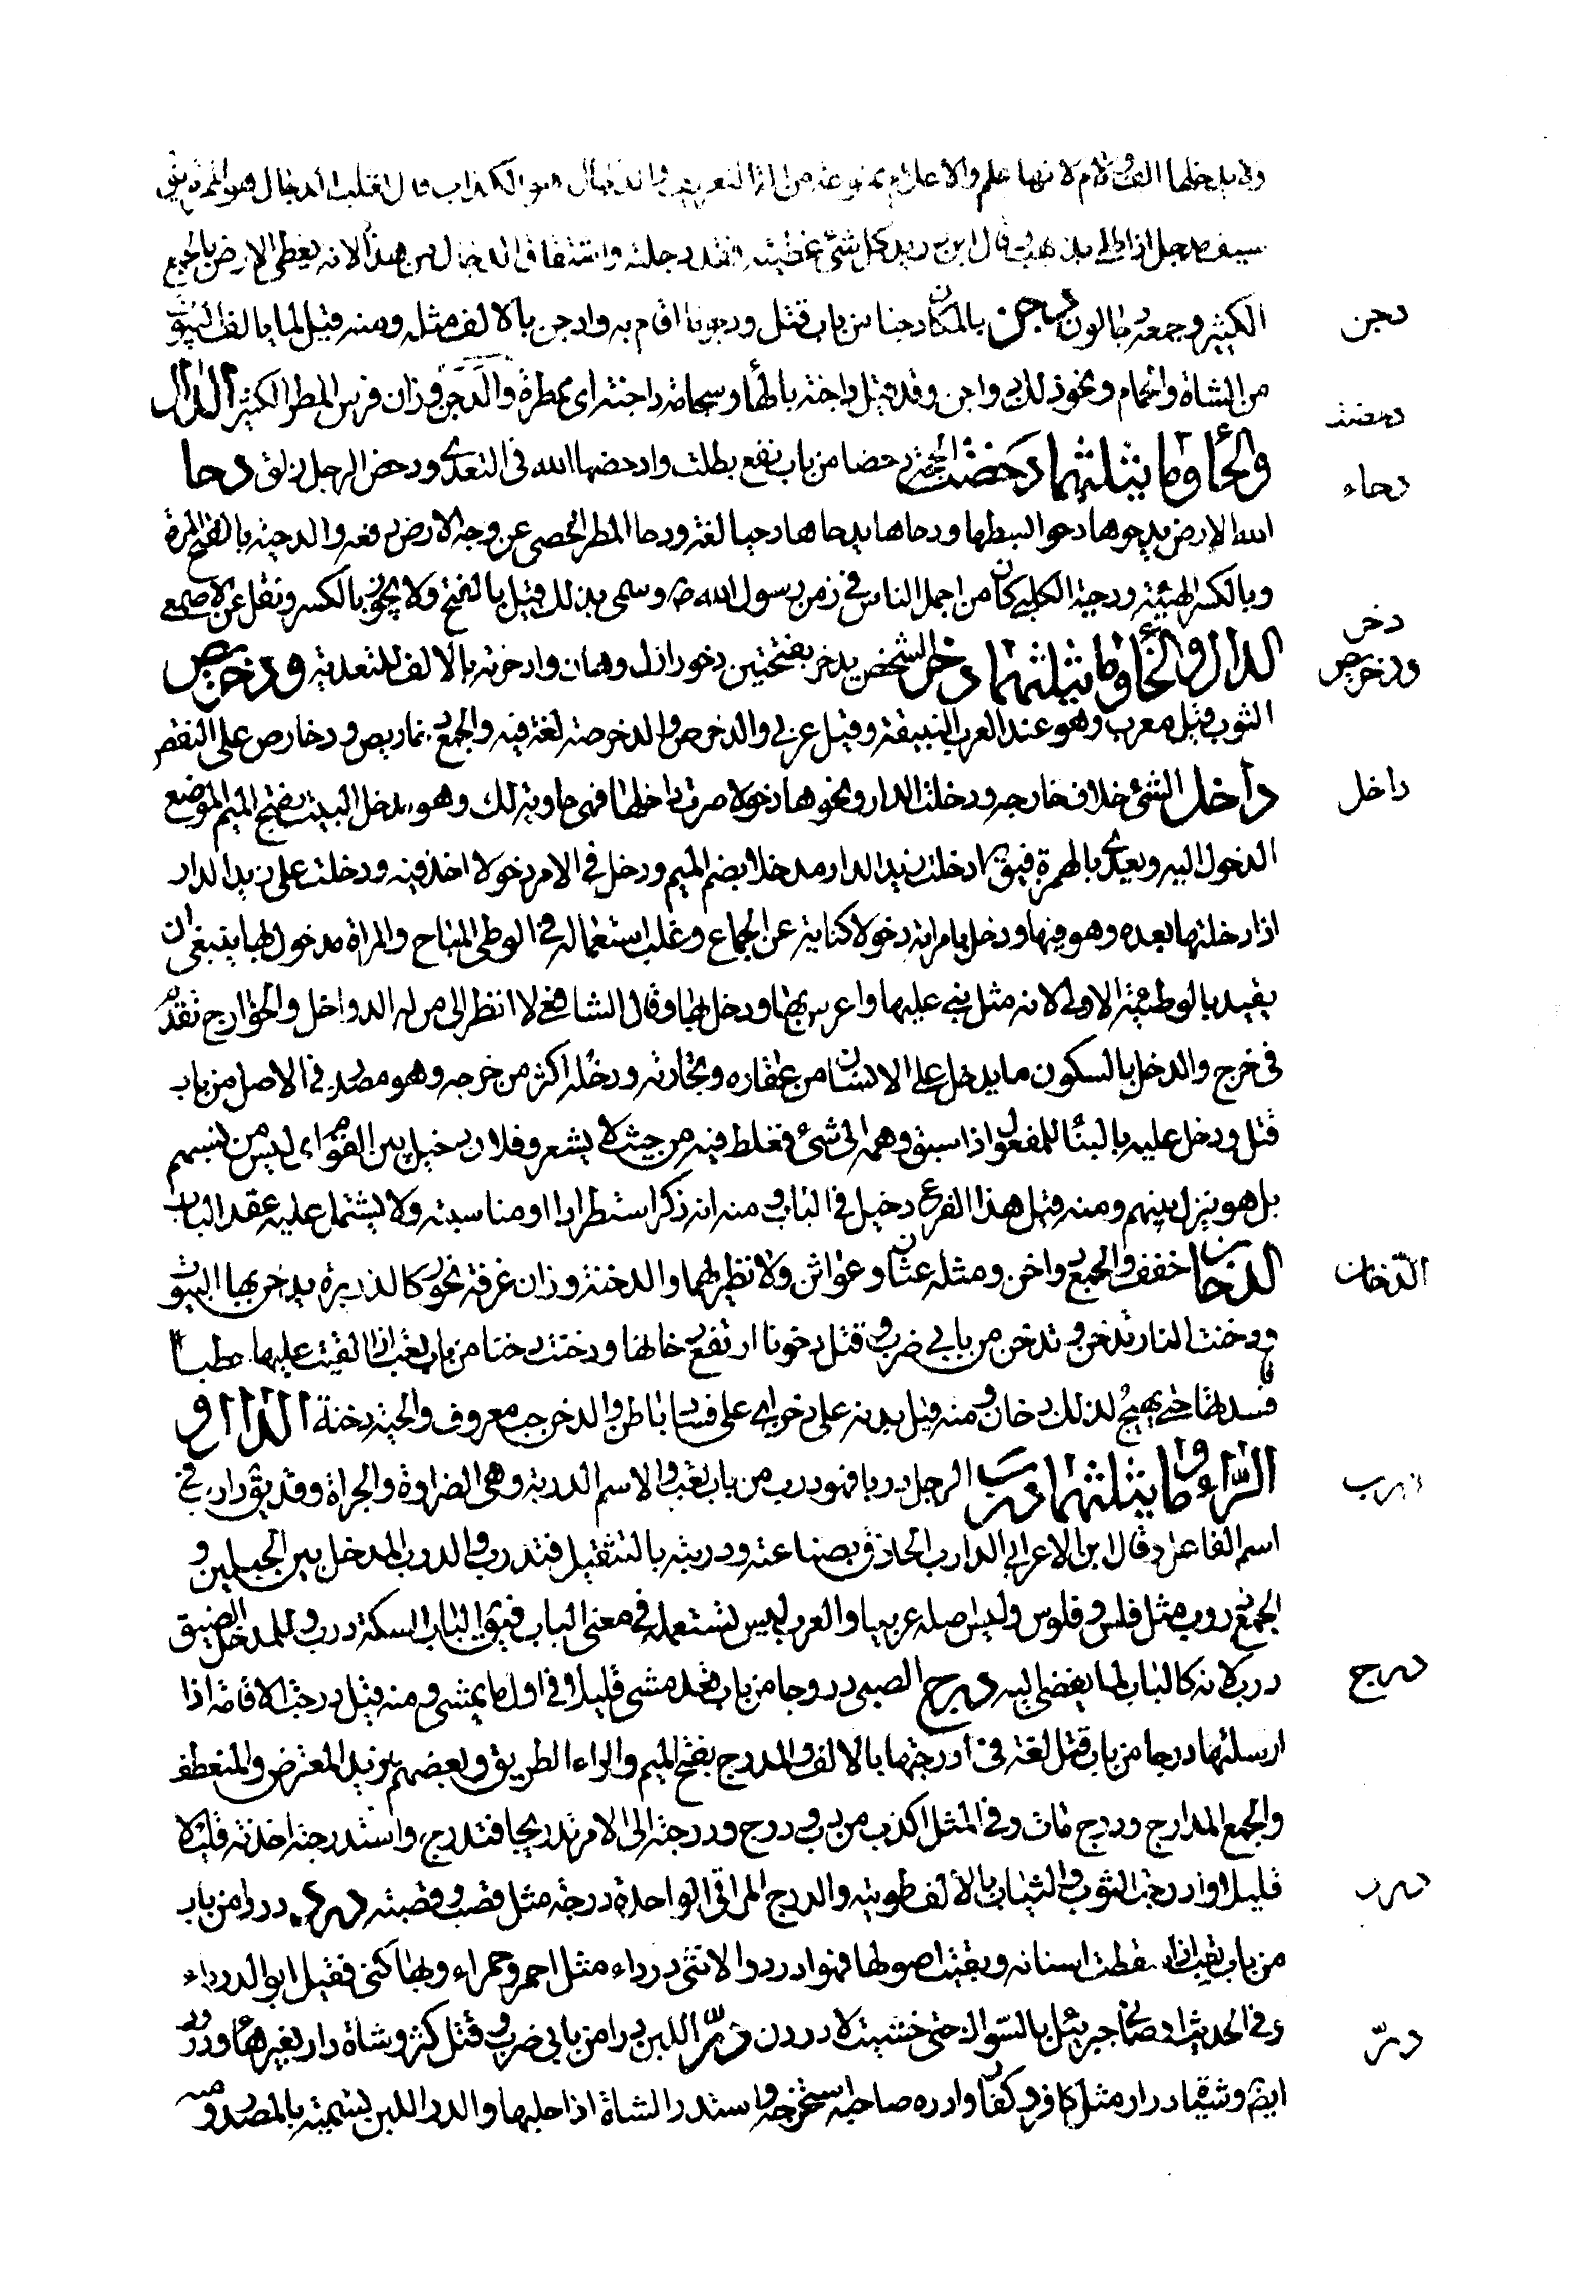 ولا يدخلها الف ولام لانها علم والاعلام ممنوعة من الة التعريف والدجال هو الكذاب قال ثعلب الدجال هو المموه يقال
سيف مدجل اذا طلي بذهب وقال ابن دريد كل شئ غطيته فقد دجلته واشتقاق الدجال من هذا لانه يغطي الارض بالجمع
دجن
الكثير وجمعه دجالون دجن بالمكان دجنا من باب قتل ودجونا اقام به وادجن بالالف مثله ومنه قيل لما يالف البيوت
من الشاة والحمام ونحو ذلك دواجن وقد قيل داجنة بالهاء وسحابة داجنة اى ممطرة والدجن وزان فلس المطر الكثير الدال
دحضت
والحاء وما يثلثهما دحضت الحجة دحضا من باب نفع بطلت وادحضها الله في التعدى ودحض الرجل زلق دحا
دحاء
الله الارض يدحوها دحوا بسطها ودحاها يدحاها دحيا لغة ودحا المطر الحصى عن وجه الارض دفعه والدحية بالفتح المرة
وبالكسر الهيئة ودحية الكلبي كان من اجمل الناس في زمن رسول الله ص وسمى بذلك قيل بالفتح ولا يجوز بالكسر ونقل عن الاصمعي
دخر
الدال والخاء وما يثلثهما دخر الشخص يدخر بفتحتين دخورا ذل وهان وادخرته بالالف للتعدية ودخريص
ودخريص
الثوب قيل معرب وهو عند العرب البنيقة وقيل عربي والدخرص والدخرصة لغة فيه والجمع دخاريص ودخارص على النقص
داخل
داخل الشئ خلاف خارجه ودخلت الدار ونحوها دخولا صرت داخلها فهي حاوية لك وهو مدخل البيت بفتح الميم لموضع
الدخول اليه ويعدى بالهمزة فيق ادخلت زيدا الدار مدخلا بضم الميم ودخل في الامر دخولا اخذ فيه ودخلت على زيد الدار
اذا دخلتها بعده وهو فيها ودخل بامراته دخولا كناية عن الجماع وغلب استعماله في الوطي المباح والمراة مدخول بها ينبغي ان
يقيد بالوطئة الاولى لانه مثل بني عليها واعرس بها ودخل بها وقال الشافعي لا انظر الى من له الدواخل والخوارج تقدم
في خرج والدخل بالسكون ما يدخل على الانسان من عقاره وتجارته ودخله اكثر من خرجه وهو مصدر في الاصل من باب
قتل ودخل عليه بالبناء للمفعول اذا سبق وهمه الى شئ فغلط فيه من حيث لا يشعر وفلان دخيل بين القوم اى ليس من نسبهم
بل هو نزيل بينهم ومنه قيل هذا الفرع دخيل في الباب ومنه انه ذكر استطرادا ومناسبة ولا يشتمل عليه عقد الباب
الدّخان
الدخان خفف والجمع دواخن ومثله عثان وعواثن ولا نظير لهما والدخنة وزان غرفة بخور كالذريرة يدخن بها البيوت
ودخنت النار تدخن وتدخن من بابي ضرب وقتل دخونا ارتفع دخانها ودخنت دخنا من باب تعب اذا القيت عليها حطبا
فافسدتها حتى يهيج لذلك دخان ومنه قيل هدنة على دخن اى على فساد باطن والدخن حب معروف والحبة دخنة الدال و
درب
الراء وما يثلثهما درب الرجل دربا فهو درب من باب تعب والاسم الدربة وهي الضراوة والجراة وقد يق دارب في
اسم الفاعل وقال ابن الاعرابي الدارب الحاذق بصناعته ودربته بالتثقيل فتدرب والدرب المدخل بين الجبلين و
الجمع دروب مثل فلس وفلوس وليس اصله عربيا والعرب ليس تستعمله في معنى الباب فيق لباب السكة درب وللمدخل الضيق
درج
درب لانه كالباب لما يفضي اليه درج الصبي دروجا من باب قعد مشى قليلا في اول ما يمشي ومنه قيل درجت الاقامة اذا
ارسلتها درجا من باب قتل لغة في ادرجتها بالالف والمدرج بفتح الميم والراء الطريق وبعضهم يزيد المعترض والمنعطف
والجمع المدارج ودرج مات وفي المثل اكذب من دب ودرج ودرجته الى الامر تدريجا فتدرج واستدرجته اخذته قليلا
درد
قليلا وادرجت الثوب والكتاب بالالف طويته والدرج المراقي الواحدة درجة مثل قصب وقصبة درد دردا من باب
من باب تعب اذا سقطت اسنانه وبقيت اصولها فهو ادرد والانثى درداء مثل احمر وحمراء وبها كني فقيل ابو الدرداء
درّ
وفي الحديث اوصاني جبرئيل بالسواك حتى خشيت لادردن درّ اللبن درا من بابي ضرب وقتل كثر وشاة دار بغير هاء ودرور
ايض وشياه درار مثل كافر وكفار وادره صاحبه استخرجه واستدر الشاة اذا حلبها والدر اللبن تسمية بالمصدر ومنه